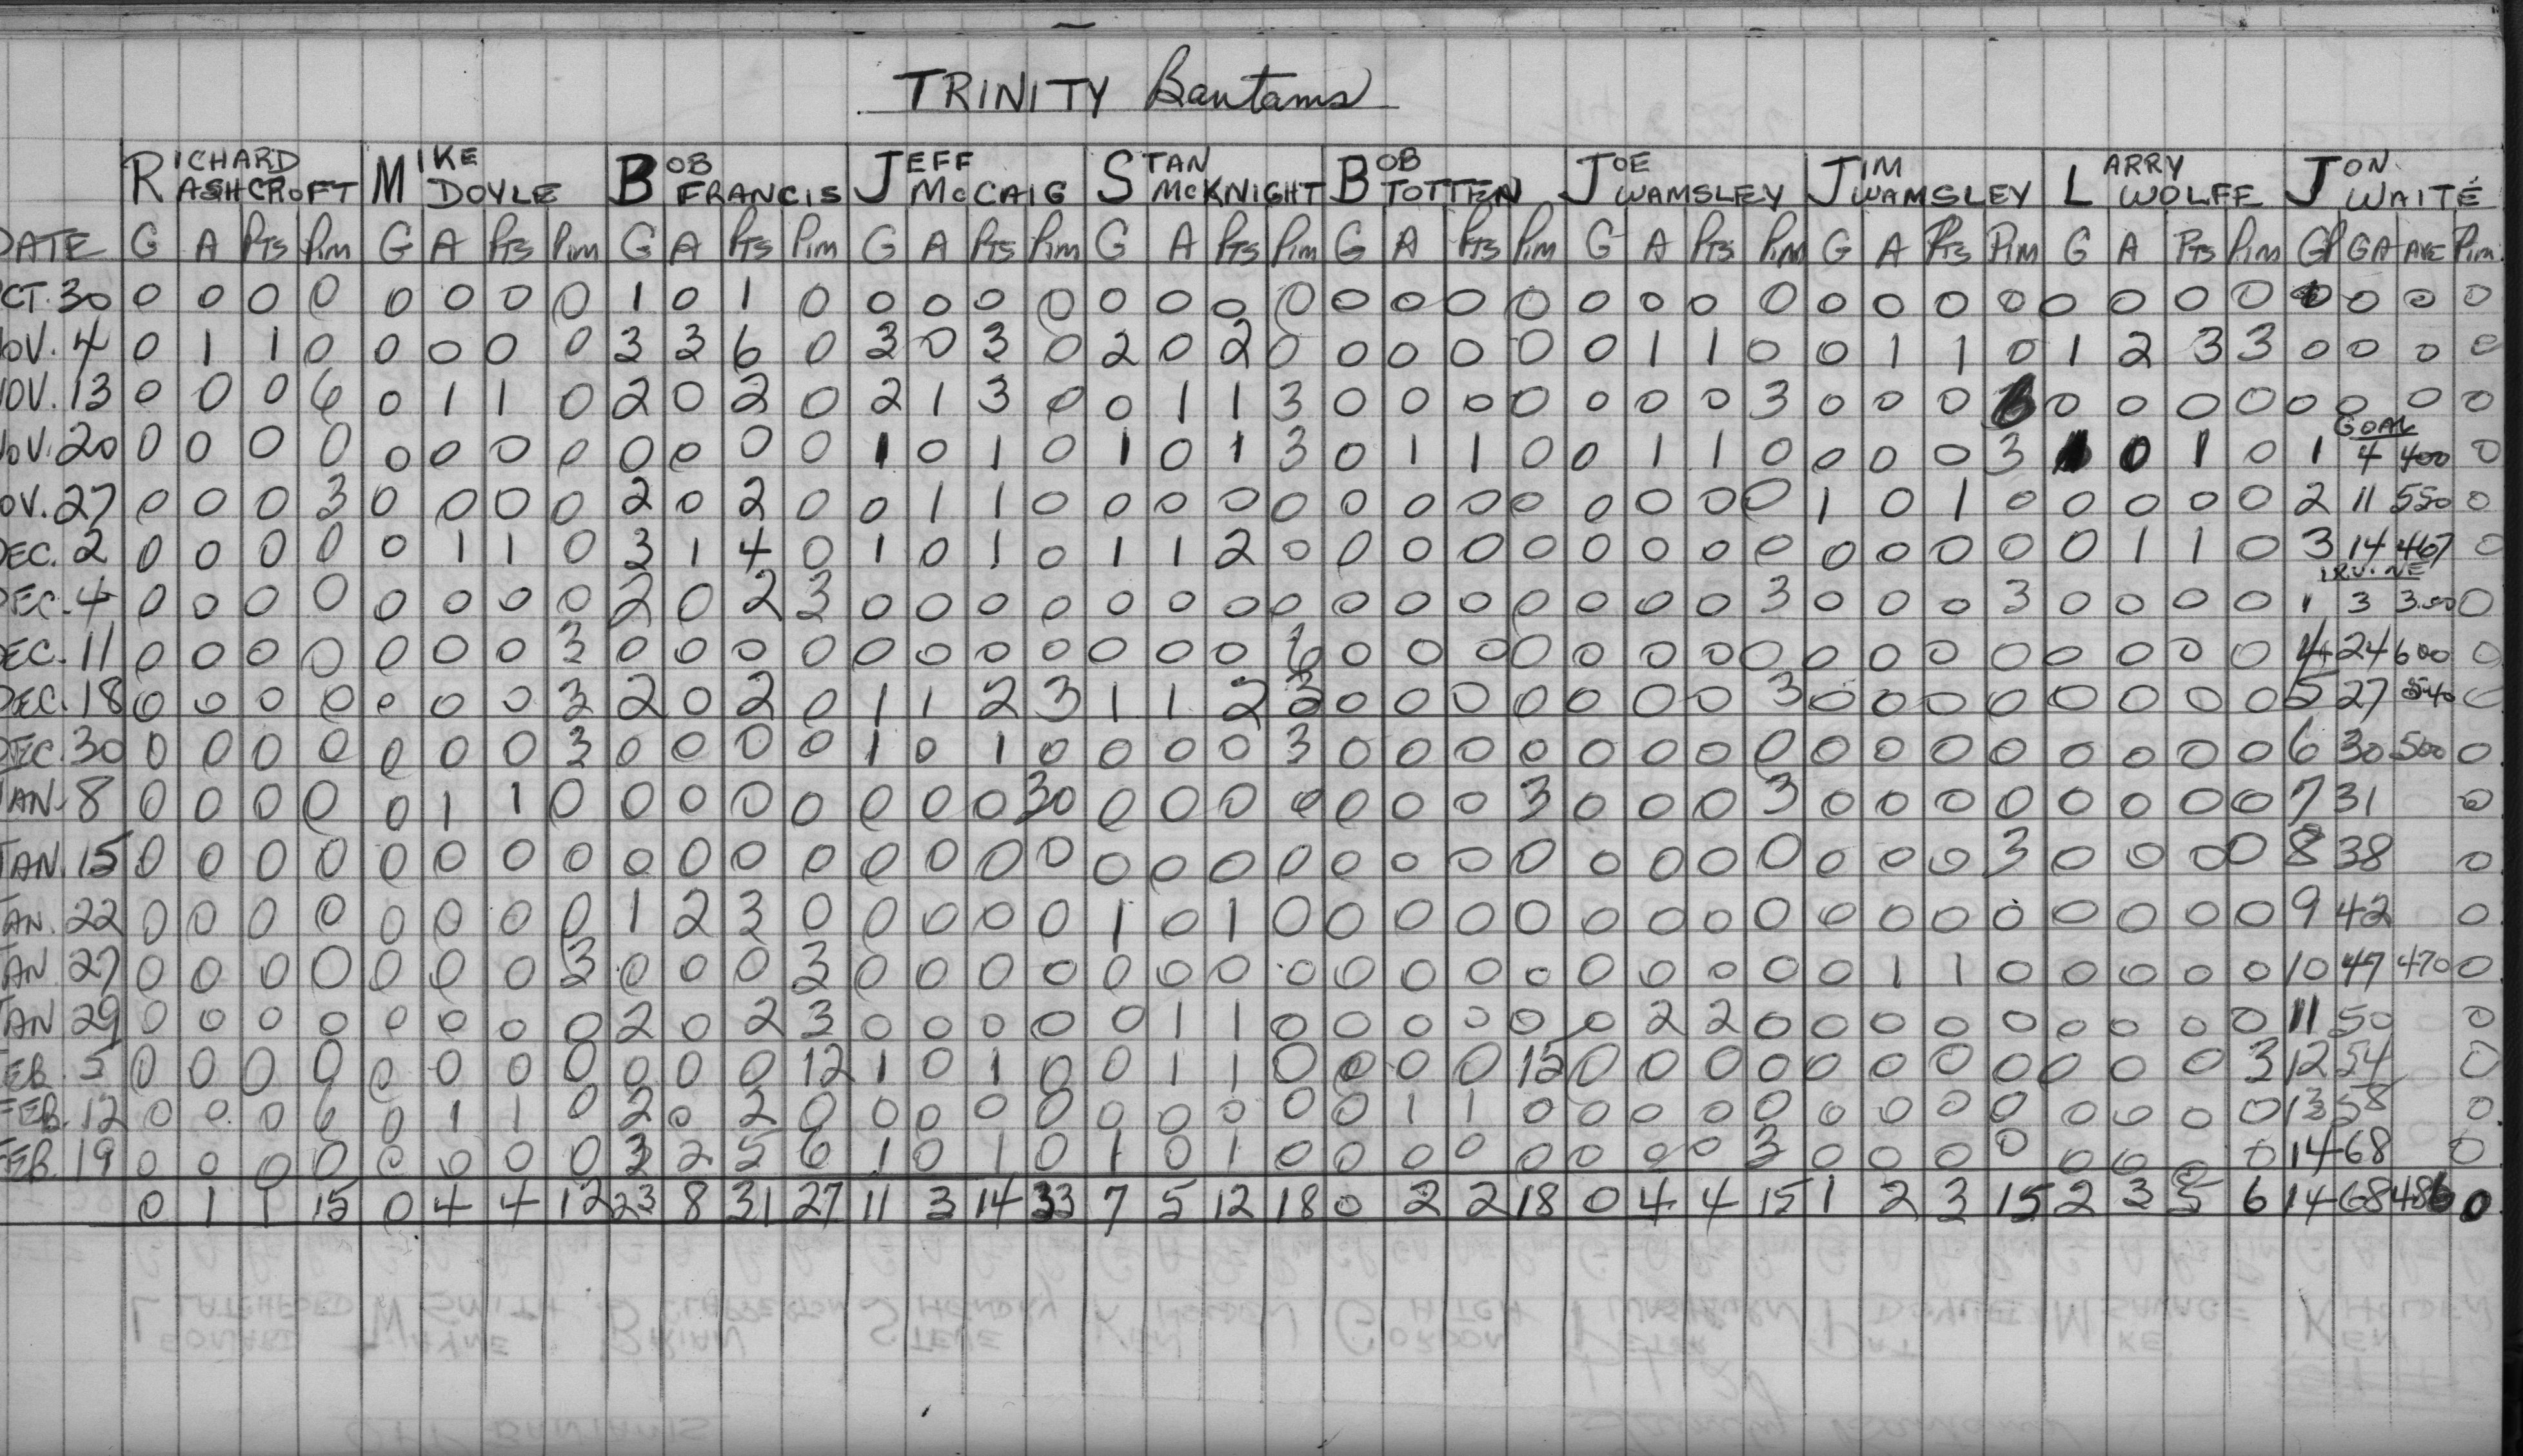 TRINITY Bantams
RICHARD ASHCROFT MIKE DOYLE BOB FRANCIS JEFF McCAIG STAN McKNIGHT BOB TOTTEN JOE WAMSLEY JIM WAMSLEY LARRY WOLFE JON WAITE
DATE G A PTS Pim G A PTS Pim G A PTS Pim G A PTS Pim G A PTS Pim G A PTS Pim G A PTS Pim G A PTS Pim G A PTS Pim GP GA AVE Pim
CT. 30 0 0 0 0 0 0 0 0 1 0 1 0 0 0 0 0 0 0 0 0 0 0 0 0 0 0 0 0 0 0 0 0 0 0 0 0 0 0 0 0
OV. 4 0 1 1 0 0 0 0 0 3 3 6 0 3 0 3 0 2 0 2 0 0 0 0 0 0 1 1 0 0 1 1 0 1 2 3 3 0 0 0 0
OV. 13 0 0 0 6 0 1 1 0 2 0 2 0 2 1 3 0 0 1 1 3 0 0 0 0 0 0 0 3 0 0 0 0 0 0 0 0 0 0 0
GOAL
OV. 20 0 0 0 0 0 0 0 0 0 0 0 0 1 0 1 0 1 0 1 3 0 1 1 0 0 1 1 0 0 0 0 3 1 0 1 0 1 4 400 0
OV. 27 0 0 0 3 0 0 0 0 2 0 2 0 0 1 1 0 0 0 0 0 0 0 0 0 0 0 0 0 1 0 1 0 0 0 0 0 2 11 550 0
EC. 2 0 0 0 0 0 1 1 0 3 1 4 0 1 0 1 0 1 1 2 0 0 0 0 0 0 0 0 0 0 0 0 0 0 1 1 0 3 14 467 0
IRVINE
EC. 4 0 0 0 0 0 0 0 0 2 0 2 3 0 0 0 0 0 0 0 0 0 0 0 0 0 0 0 3 0 0 0 3 0 0 0 0 1 3 3.00 0
EC. 11 0 0 0 0 0 0 0 3 0 0 0 0 0 0 0 0 0 0 0 6 0 0 0 0 0 0 0 0 0 0 0 0 0 0 0 0 4 24 600 0
DEC. 18 0 0 0 0 0 0 0 3 2 0 2 0 1 1 2 3 1 1 2 3 0 0 0 0 0 0 0 3 0 0 0 0 0 0 0 0 5 27 540 0
DEC. 30 0 0 0 0 0 0 0 3 0 0 0 0 1 0 1 0 0 0 0 3 0 0 0 0 0 0 0 0 0 0 0 0 0 0 0 0 6 30 500 0
JAN. 8 0 0 0 0 0 1 1 0 0 0 0 0 0 0 0 30 0 0 0 0 0 0 0 3 0 0 0 3 0 0 0 0 0 0 0 0 7 31 0
JAN. 15 0 0 0 0 0 0 0 0 0 0 0 0 0 0 0 0 0 0 0 0 0 0 0 0 0 0 0 0 0 0 0 3 0 0 0 0 8 38 0
AN. 22 0 0 0 0 0 0 0 0 1 2 3 0 0 0 0 0 1 0 1 0 0 0 0 0 0 0 0 0 0 0 0 0 0 0 0 0 9 42 0
AN 27 0 0 0 0 0 0 0 3 0 0 0 3 0 0 0 0 0 0 0 0 0 0 0 0 0 0 0 0 0 1 1 0 0 0 0 0 10 47 470 0
JAN 29 0 0 0 0 0 0 0 0 2 0 2 3 0 0 0 0 0 1 1 0 0 0 0 0 0 2 2 0 0 0 0 0 0 0 0 0 11 50 0
EB. 5 0 0 0 0 0 0 0 0 0 0 0 12 1 0 1 0 0 1 1 0 0 0 0 15 0 0 0 0 0 0 0 0 0 0 0 3 12 54 0
FEB. 12 0 0 0 6 0 1 1 0 2 0 2 0 0 0 0 0 0 0 0 0 0 1 1 0 0 0 0 0 0 0 0 0 0 0 0 0 13 58 0
FEB. 19 0 0 0 0 0 0 0 0 3 2 5 6 1 0 1 0 1 0 1 0 0 0 0 0 0 0 0 3 0 0 0 0 0 0 0 0 14 68 0
0 1 1 15 0 4 4 12 23 8 31 27 11 3 14 33 7 5 12 18 0 2 2 18 0 4 4 15 1 2 3 15 2 3 5 6 14 68 486 0